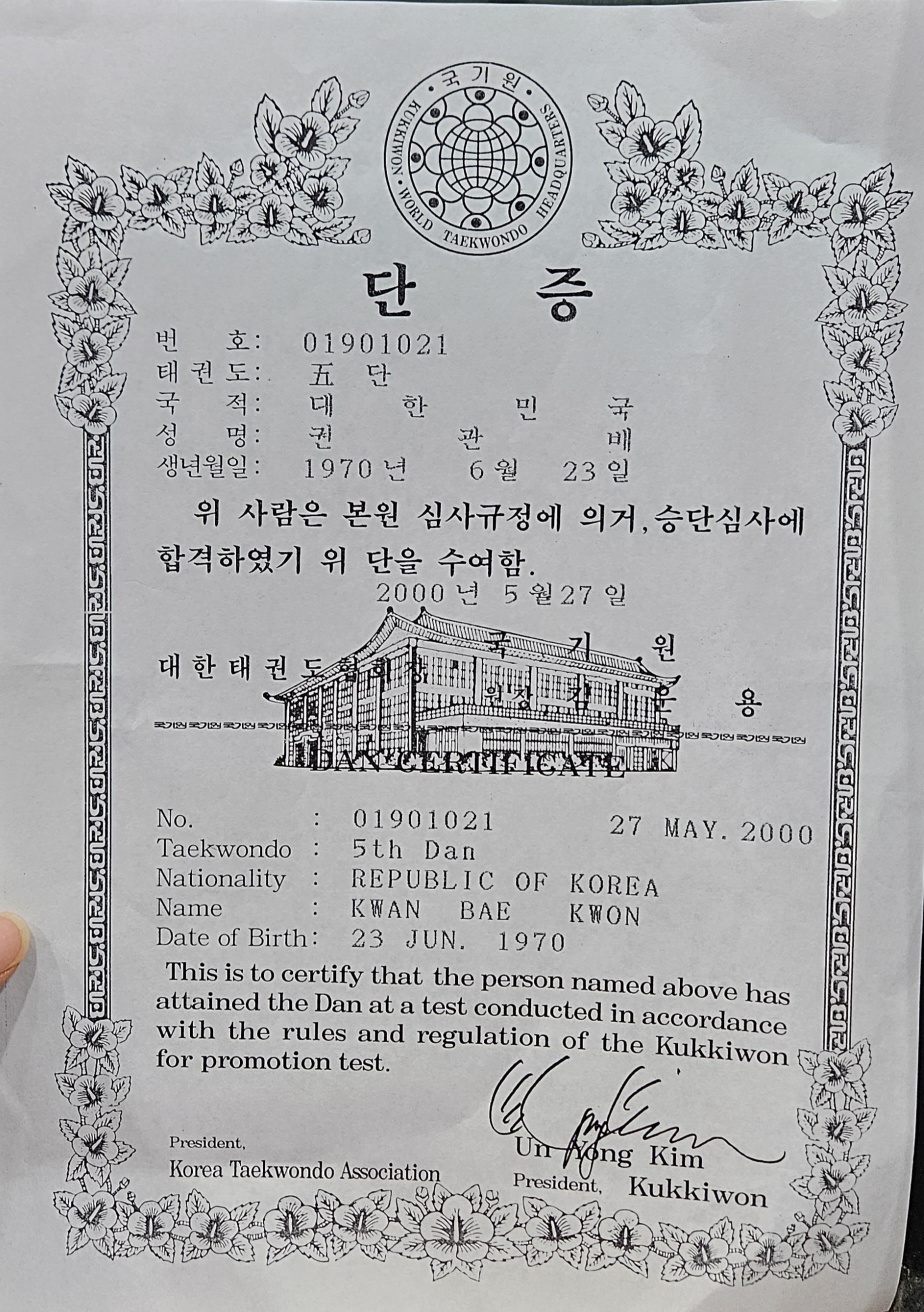 국기원
KUKKIWON • WORLD TAEKWONDO HEADQUARTERS
단 증
번 호: 01901021
태권도: 五 단
국 적: 대 한 민 국
성 명: 권 관 배
생년월일: 1970 년 6 월 23 일
위 사람은 본원 심사규정에 의거, 승단심사에
합격하였기 위 단을 수여함.
2000 년 5 월 27 일
국 기 원
대 한 태 권 도 협 회 장
원장 김 운 용
국기원 국기원 국기원 국기원 국기원 국기원 국기원 국기원
DAN CERTIFICATE
No. : 01901021 27 MAY. 2000
Taekwondo : 5th Dan
Nationality : REPUBLIC OF KOREA
Name : KWAN BAE KWON
Date of Birth: 23 JUN. 1970
This is to certify that the person named above has
attained the Dan at a test conducted in accordance
with the rules and regulation of the Kukkiwon
for promotion test.
Un Yong Kim
President, President, Kukkiwon
Korea Taekwondo Association